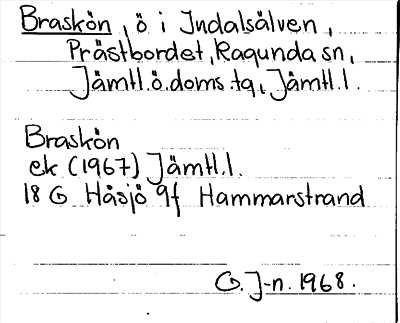 Braskön, ö i Indalsälven,
Prästbordet, Ragunda sn,
Jämtl.ö.doms.tg, Jämtl.l.
Braskön
ek (1967) Jämtl.l.
18 G Håsjö 9f Hammarstrand
G. J-n. 1968.